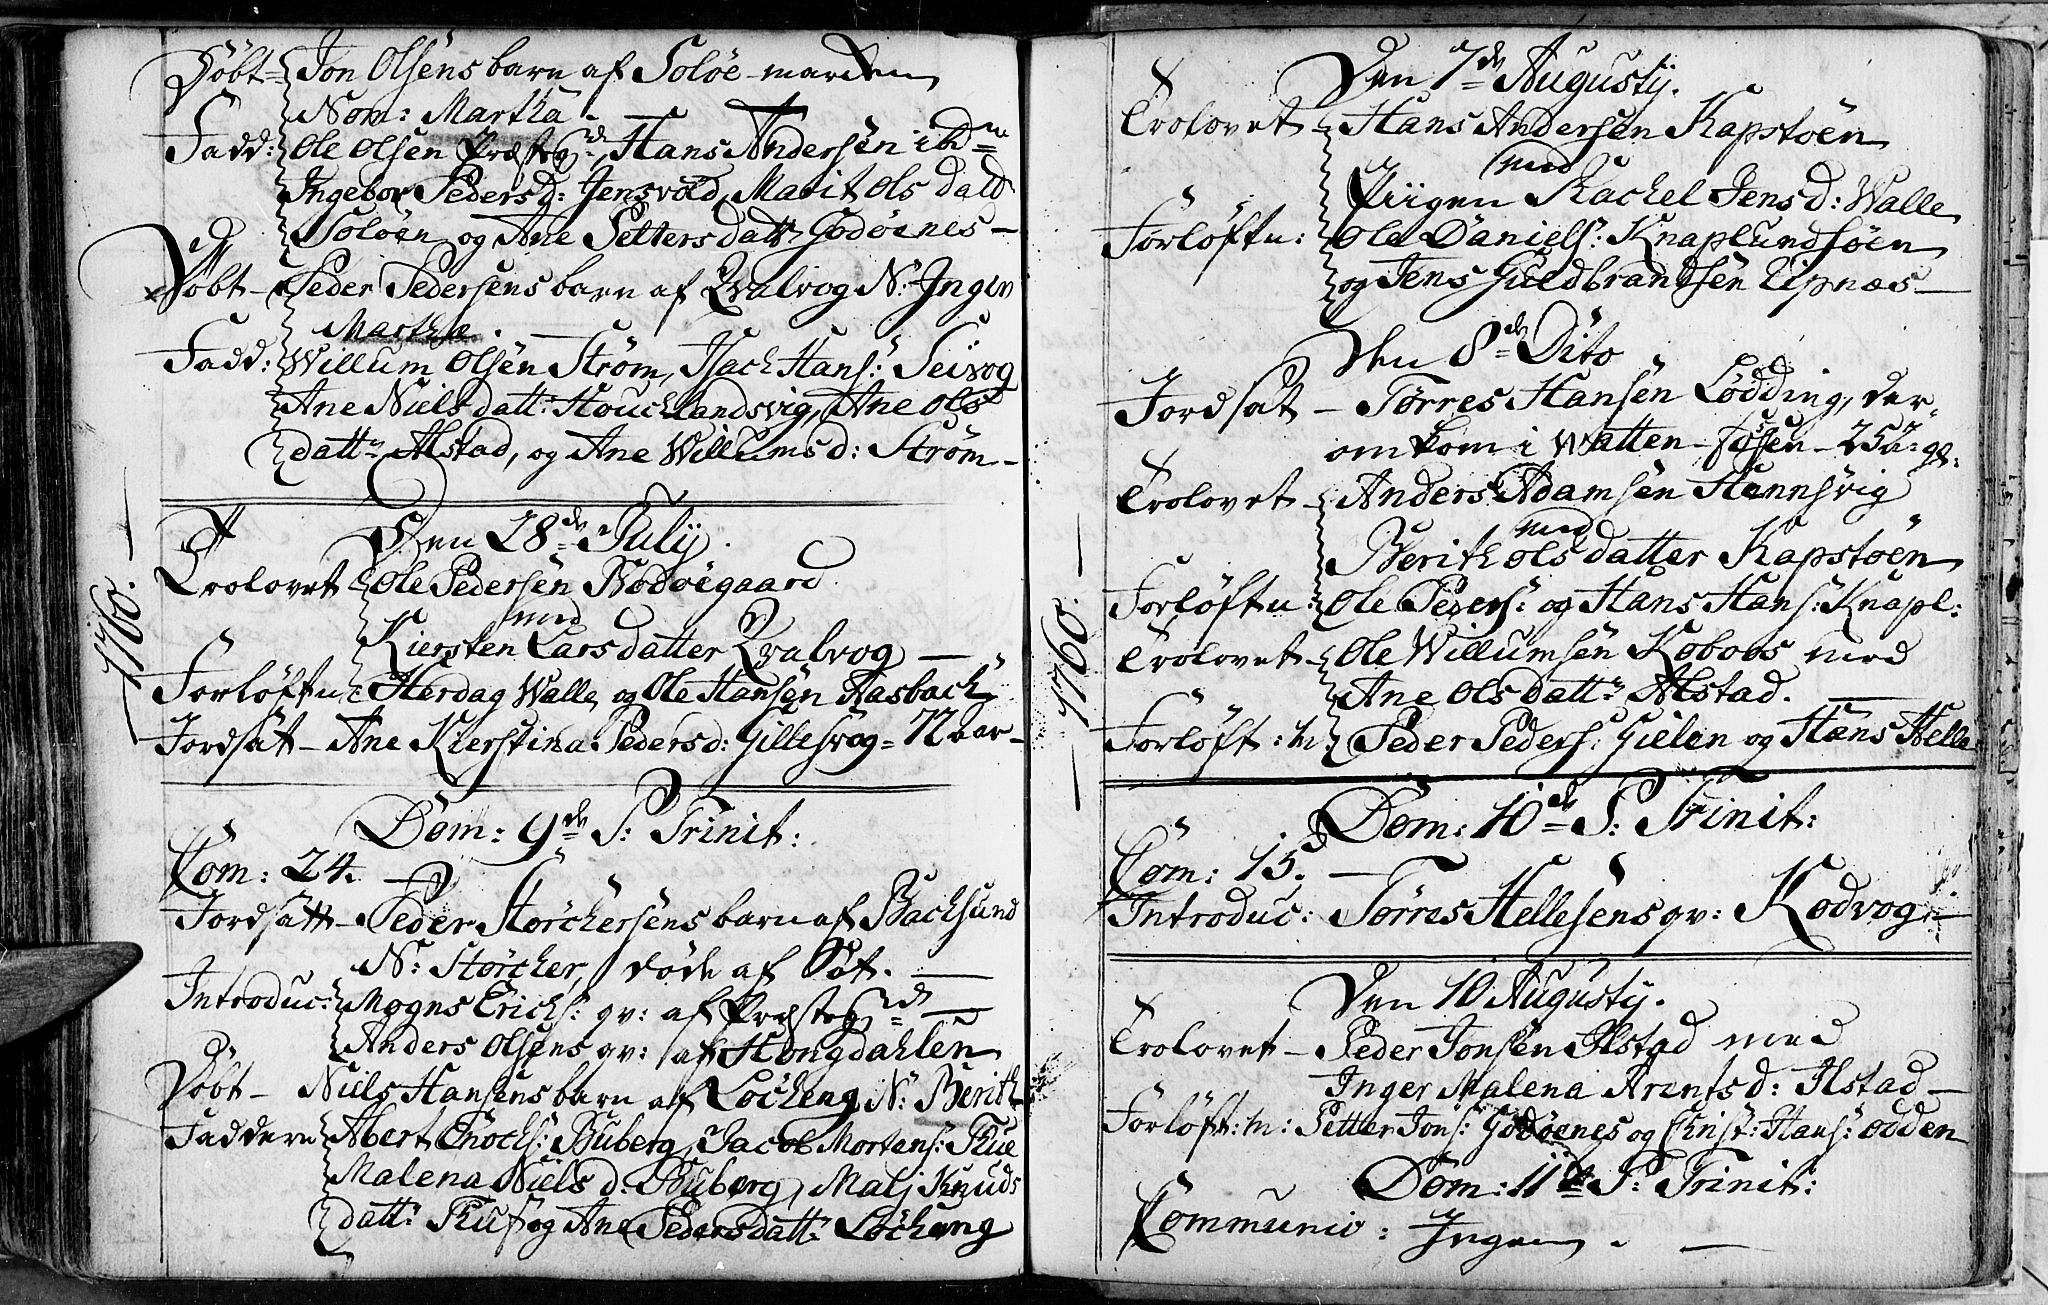 Döbt = Jon Olsens barn af Soløe-marken
Nom: Martha.
Fadd: Ole Olsen Præsteg:d, Hans Andersen ibd:m
Ingebor Peders d: Jensvold, Marit Ols datt
Soløen og Ane Petters datt Godøenes —
Döbt — Peder Pedersens barn af Qvalvog N: Inger
Martha. —
Fadd: Willum Olsen Strøm, Isach Hans: Seivog
Ane Niels datt: Houchlandsvig, Ane Ols
datt:r Alstad, og Ane Willums d: Strøm —
1760. —
Den 28de July.
Trolovet Ole Pedersen Bodøegaard
med
Kiersten Lars datter Qvalvog —
Forlöftn: Herdag Walle og Ole Hansen Aasbach
Jordsat — Ane Kierstina Peders d: Gillesvog = 72 aar —
Dom: 9de P: Trinit:
Com: 24. —
Jordsatt — Peder Störchersens barn af Bachsund
N: Störcher, døde af Sot. —
Introduc: Mogns Erichs: qv: af Præsteg:d —
Anders Olsens qv: af Hongdahlen
Döbt — Niels Hansens barn af Löcheng N: Berith
Faddere Abert Enochs: Buberg, Jacob Mortens: Tue
Malena Niels d: Buberg, Malj Knuds
datt:r Tuf og Ane Peders datt:r Löcheng
Den 7de Augustij.
Trolovet — Hans Andersen Kapstøen
med
Piigen Rachel Jens d: Walle
Forlöftn: Ole Daniels: Knaplundsøen
og Jens Guldbrandsen Lipnæs —
Den 8de Dito
Jordsat — Tørres Hansen Lødding, der
omkom i Watten-fossen — 25 a: gl:
Trolovet — Anders Adamsen Hannsvig
med
Berith Ols datter Kapstøen
Forlöftn: Ole Peders: og Hans Hans: Knapl:
Trolovet — Ole Willumsen Koboes med
Ane Ols datt:r Alstad. —
Forlöft:m: Peder Peders: Gielen og Hans Helle
— 1760. —
Dom: 10de P: Trinit:
Com: 15. —
Introduc: Tørres Hellesens qv: Kodvog —
Den 10 Augustij.
Trolovet — Peder Jonsen Ilstad med
Inger Malena Arents d: Ilstad —
Forlöft:m: Petter Jons: Godøenes og Christ: Hans: Odden
Dom: 11te P: Trinit:
Communio: Ingen. —